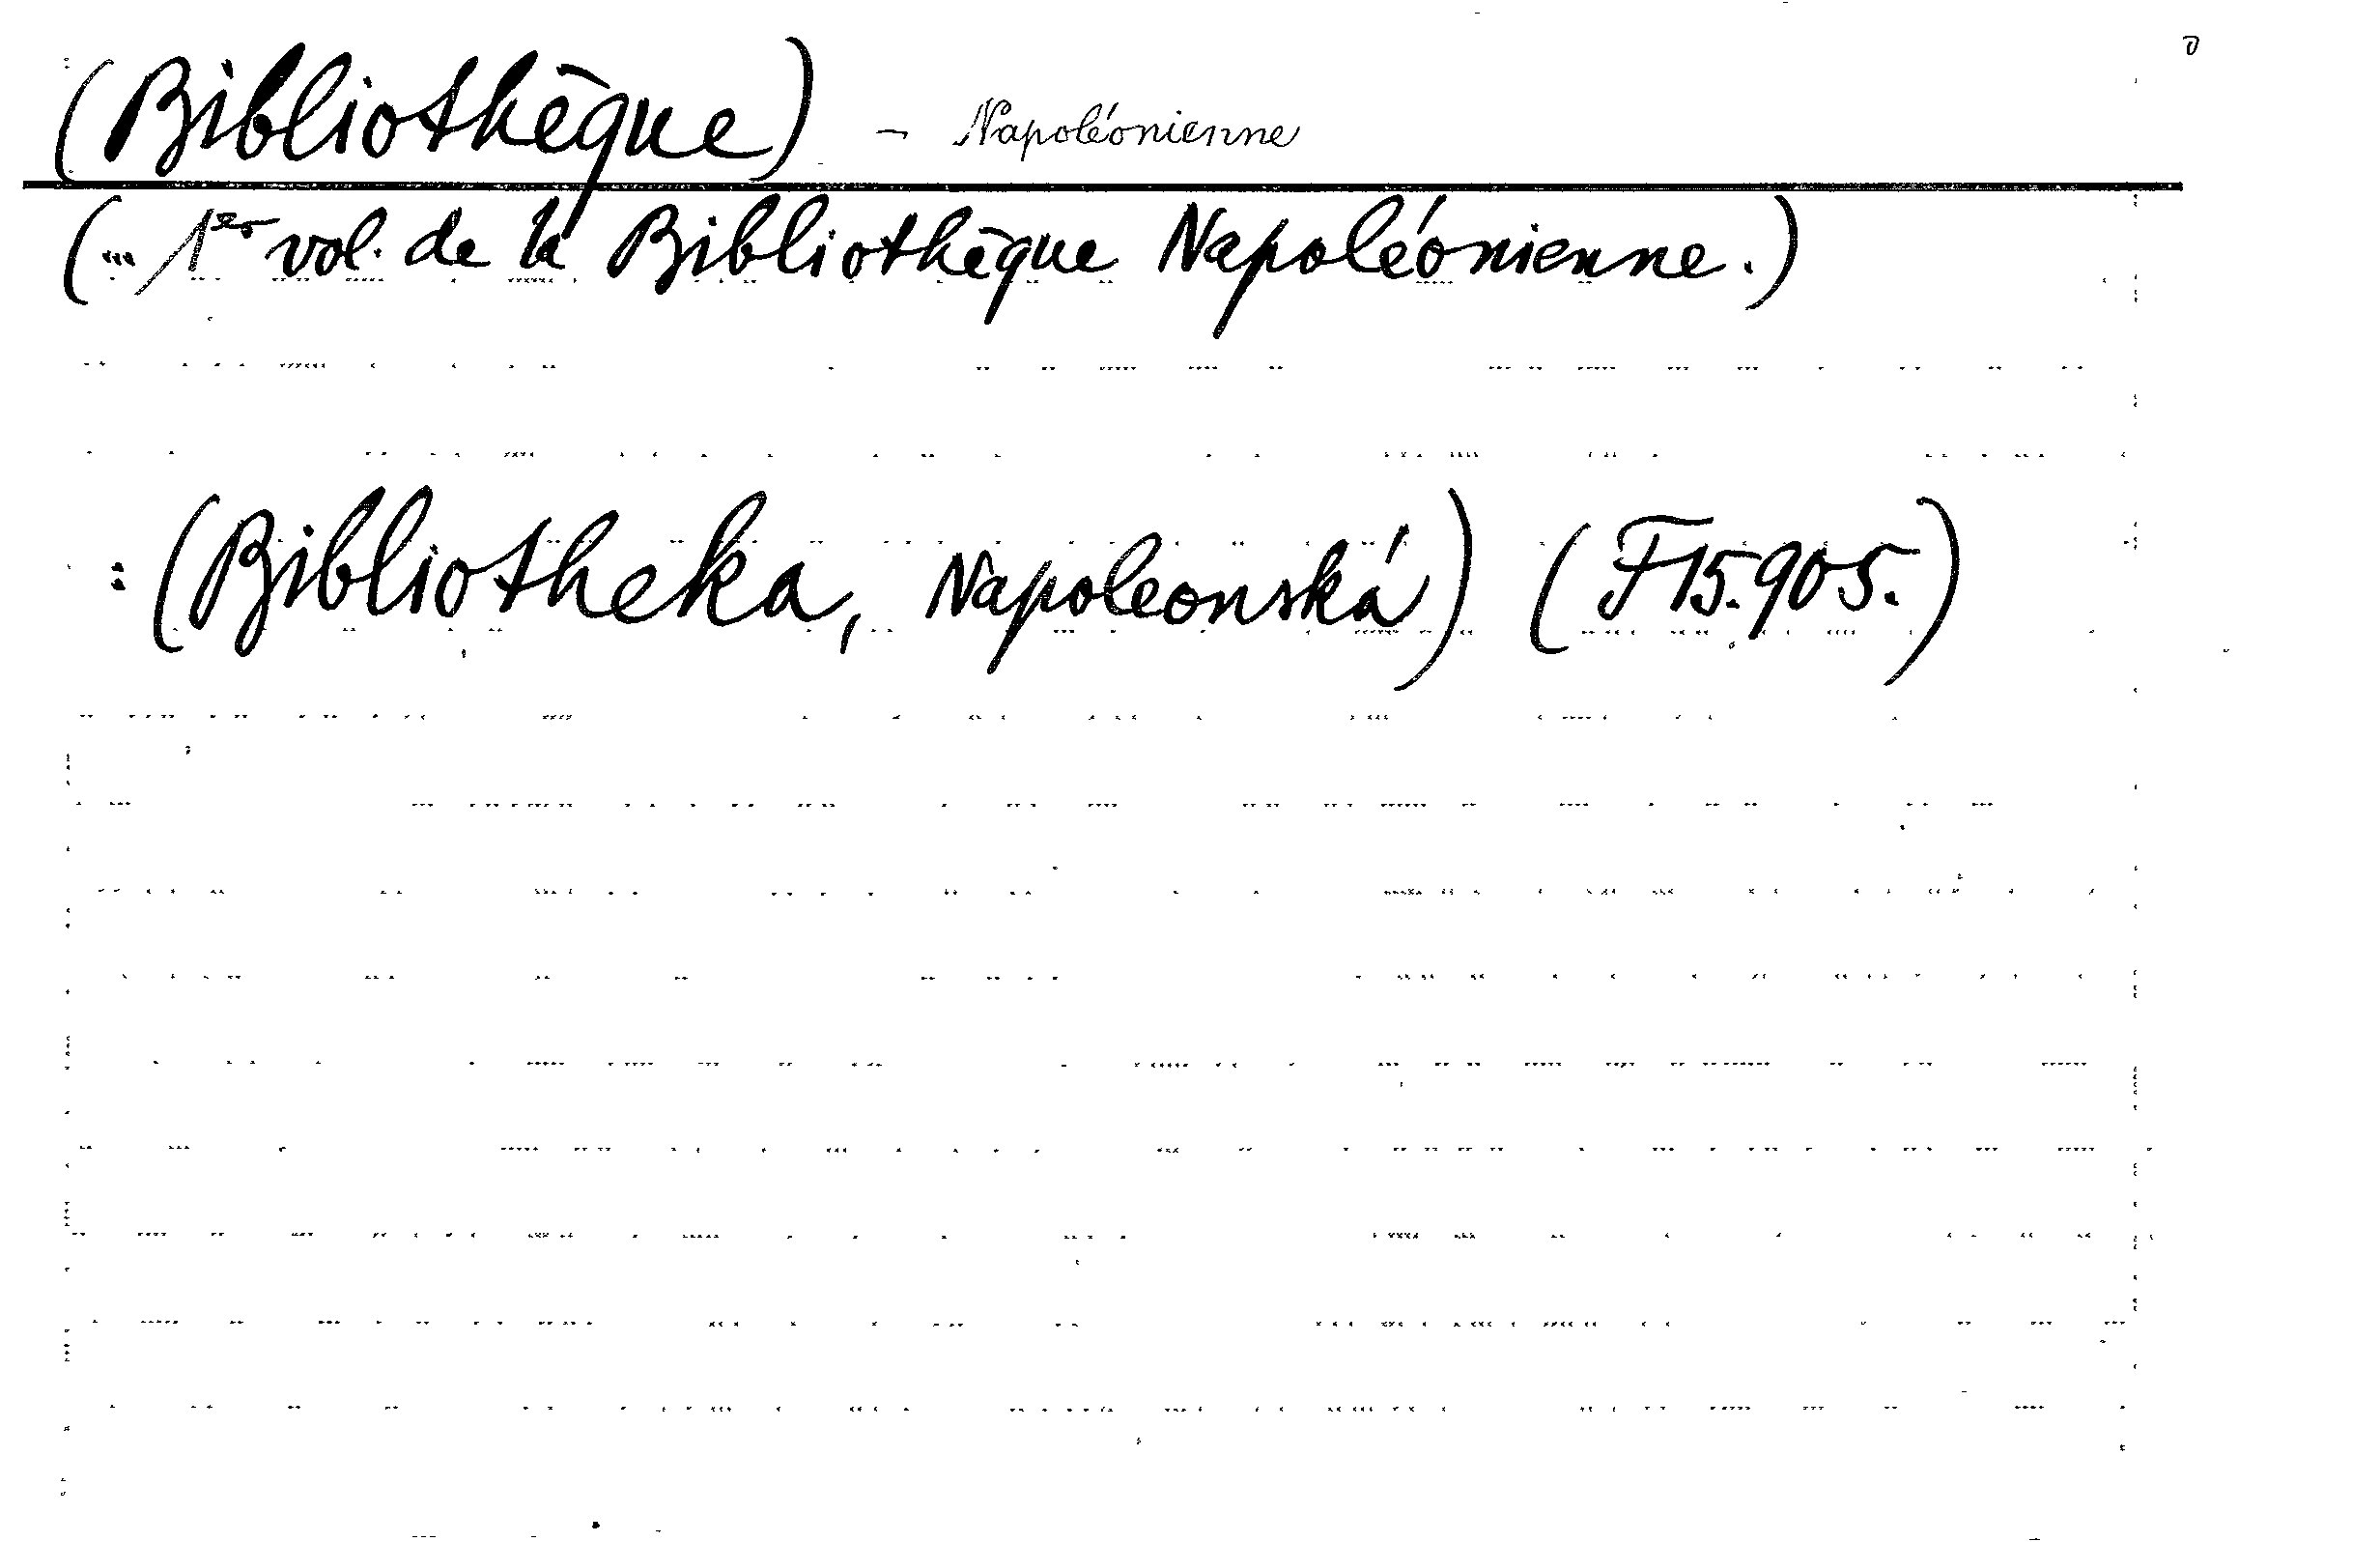 (Bibliothèque) - Napoléonienne
(... 1er vol. de la Bibliothèque Napoléonienne.)
: (Bibliotheka, Napoleonská) (F15.905.)